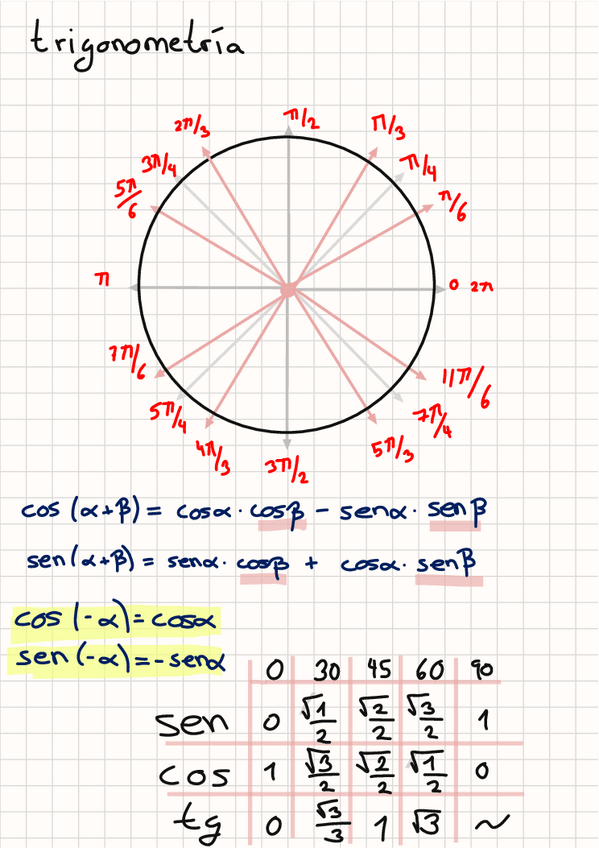 trigonometría
π/2
2π/3 π/3
3π/4 π/4
5π/6 π/6
π 0 2π
7π/6 11π/6
5π/4 7π/4
4π/3 5π/3
3π/2
cos (α+β) = cosα · cosβ - senα · senβ
sen (α+β) = senα · cosβ + cosα · senβ
cos (-α) = cosα
sen (-α) = -senα
0 30 45 60 90
sen 0 √1/2 √2/2 √3/2 1
cos 1 √3/2 √2/2 √1/2 0
tg 0 √3/3 1 √3 ~